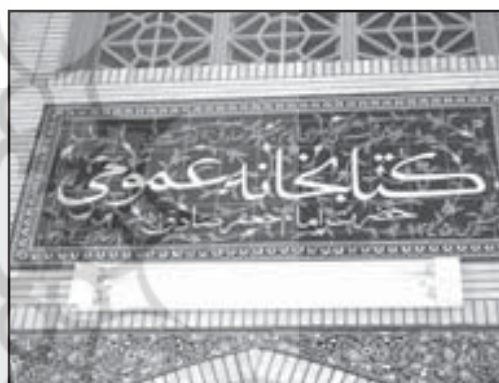 کتابخانه عمومی
حضرت امام جعفر صادق